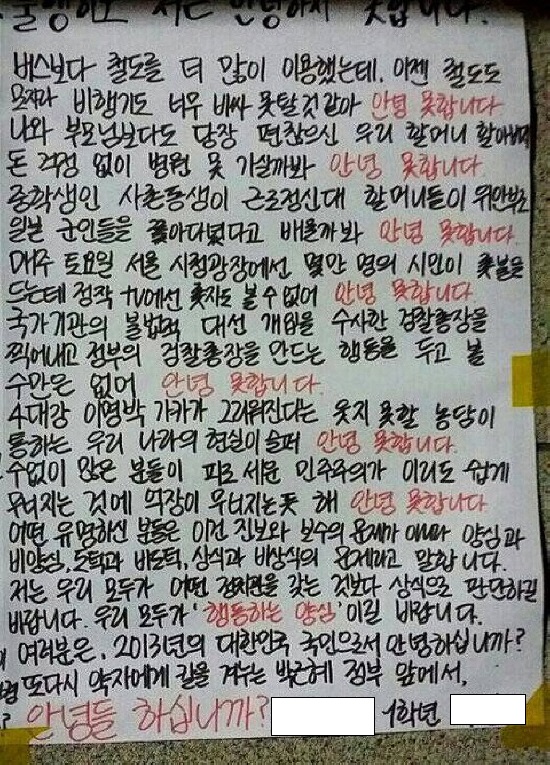 저는 안녕하지 못합니다.
버스보다 철도를 더 많이 이용했는데, 이젠 철도도
모자라 비행기도 너무 비싸 못탈것 같아 안녕 못합니다
나와 부모님보다도 당장 편찮으신 우리 할머니 할아버지
돈 걱정 없이 병원 못 가실까봐 안녕 못합니다.
중학생인 사촌동생이 근로정신대 할머니들이 위안부로
일본 군인들을 쫓아다녔다고 배울까봐 안녕 못합니다.
매주 토요일 서울 시청광장에선 몇만 명의 시민이 촛불을
드는데 정작 tv에선 촛자도 볼 수 없어 안녕 못합니다
국가기관의 불법적 대선 개입을 수사한 검찰총장을
찍어내고 정부의 검찰총장을 만드는 행동을 두고 볼
수만은 없어 안녕 못합니다.
4대강 이명박 가카가 그리워진다는 웃지 못할 농담이
통하는 우리 나라의 현실이 슬퍼 안녕 못합니다.
수없이 많은 분들이 피로 세운 민주주의가 이리도 쉽게
무너지는 것에 억장이 무너지는듯 해 안녕 못합니다
어떤 유명하신 분들은 이건 진보와 보수의 문제가 아니라 양심과
비양심, 도덕과 비도덕, 상식과 비상식의 문제라고 말합니다.
저는 우리 모두가 어떤 정치관을 갖는 것보다 상식으로 판단하길
바랍니다. 우리 모두가 '행동하는 양심'이길 바랍니다.
여러분은, 2013년의 대한민국 국민으로서 안녕하십니까?
또다시 약자에게 칼을 겨누는 박근혜 정부 앞에서,
안녕들 하십니까? 1학년